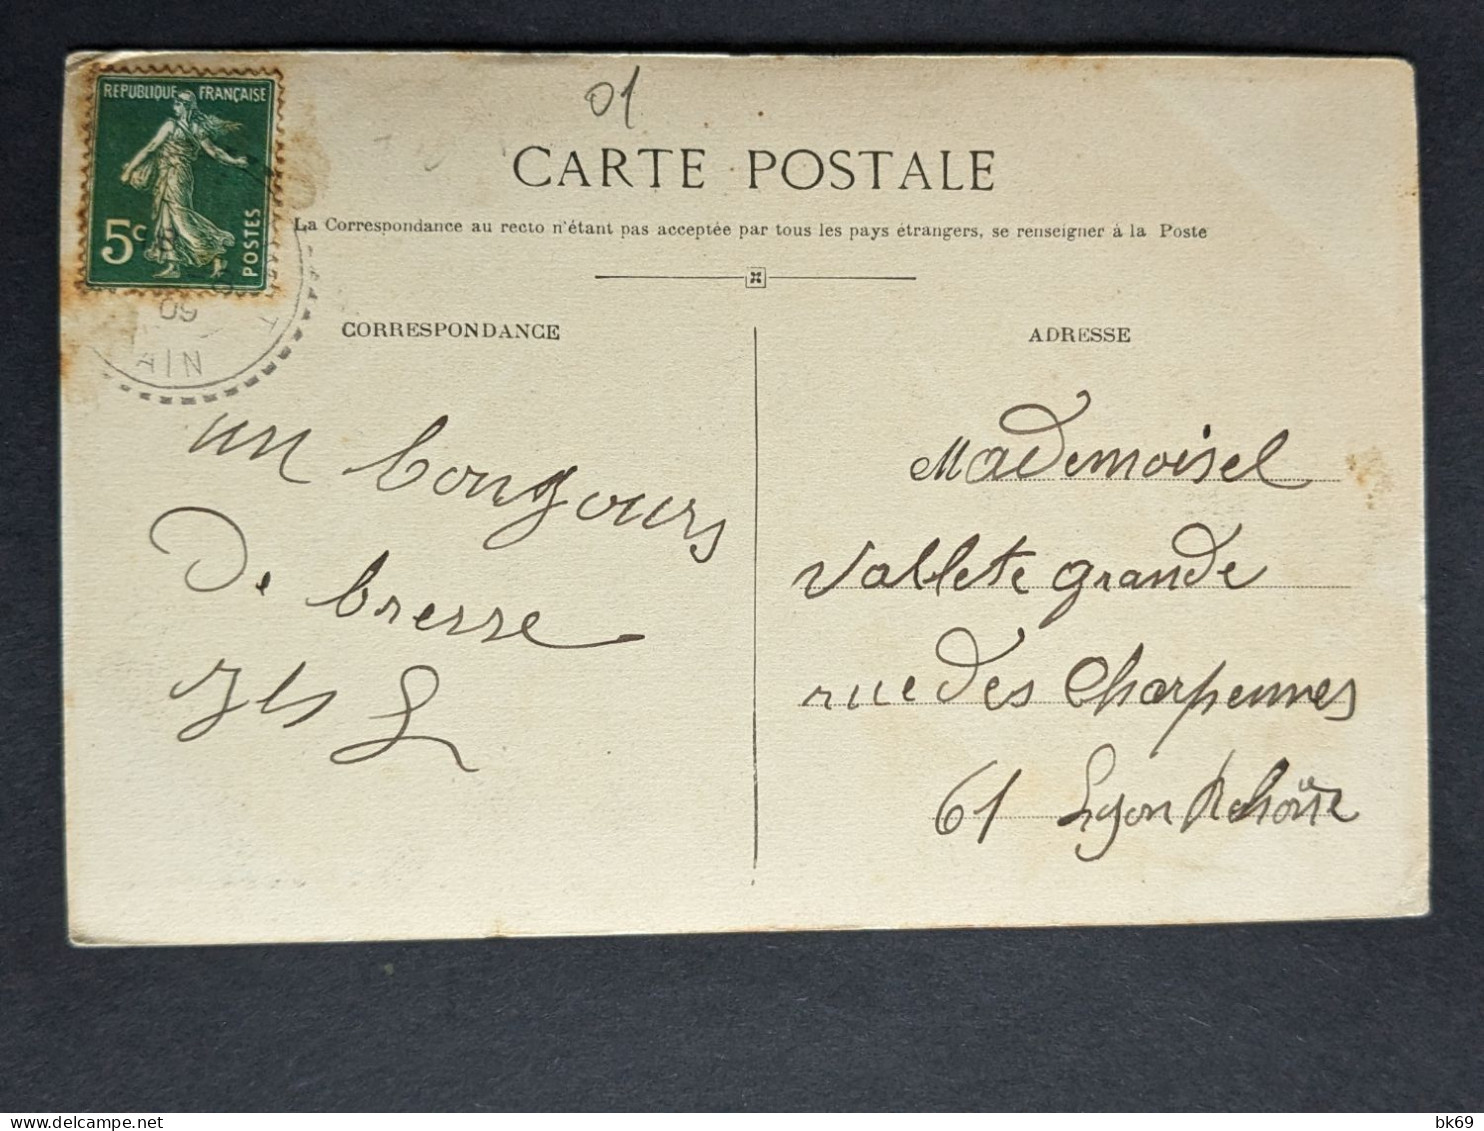 01
REPUBLIQUE FRANÇAISE
5c
POSTES
09
AIN
CARTE POSTALE
La Correspondance au recto n'étant pas acceptée par tous les pays étrangers, se renseigner à la Poste
CORRESPONDANCE
un bongours
De bresse
ADRESSE
Mademoisel
Vallete grande
rue des Charpennes
61 Lyon
bk69